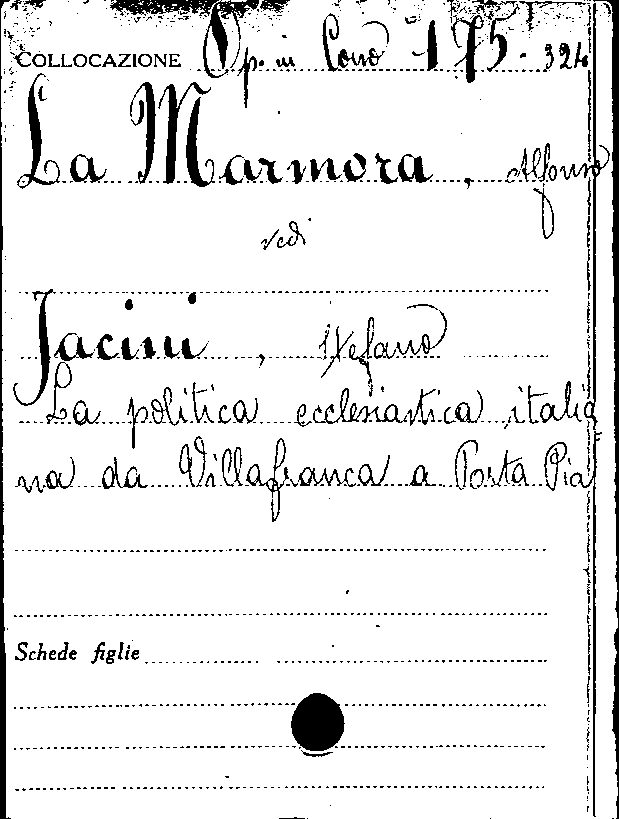 COLLOCAZIONE Op. in Corso 175. 324
La Marmora, Alfonso
vedi
Jacini, Stefano
La politica ecclesiastica italia
na da Villafranca a Porta Pia
Schede figlie